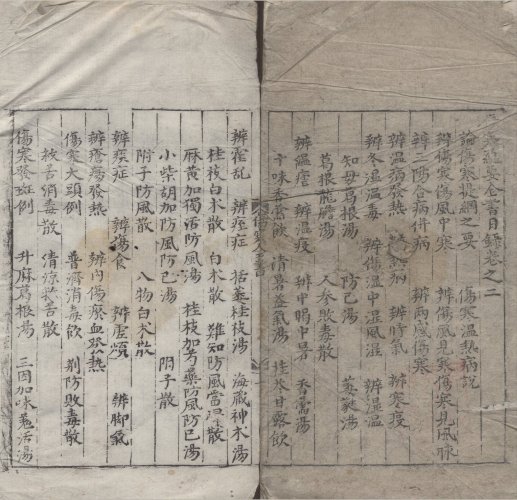 論傷寒提綱之要 傷寒溫熱病說
辨傷寒傷風中寒 辨傷風見寒傷寒見風脉
辨三陽合病併病 辨兩感傷寒
辨溫病發熱 病 辨時氣 辨寒疫
辨冬溫溫毒 辨傷濕中濕風濕 辨濕溫
知母葛根湯 防己湯 萎蕤湯
葛根龍膽湯 人參敗毒散
辨溫瘧 辨溫疫 辨中暍中暑 香薷湯
十味香薷飲 清暑益氣湯 桂苓甘露飲
辨霍亂 辨痙症 括蔞桂枝湯 海藏神朮湯
桂枝白朮散 白朮散 雄知防風當歸散
麻黃加獨活防風湯 桂枝加芍藥防風防已湯
小柴胡加防風防已湯 附子散
附子防風散 八物白朮散
辨痰症 辨傷食 辨虛煩 辨脚氣
辨瘡瘍發熱 辨內傷瘀血發熱
傷寒大頭例 普濟消毒飲 荊防敗毒散
被苦消毒散 清涼救苦散
傷寒發斑例 升麻葛根湯 三因加味羗活湯